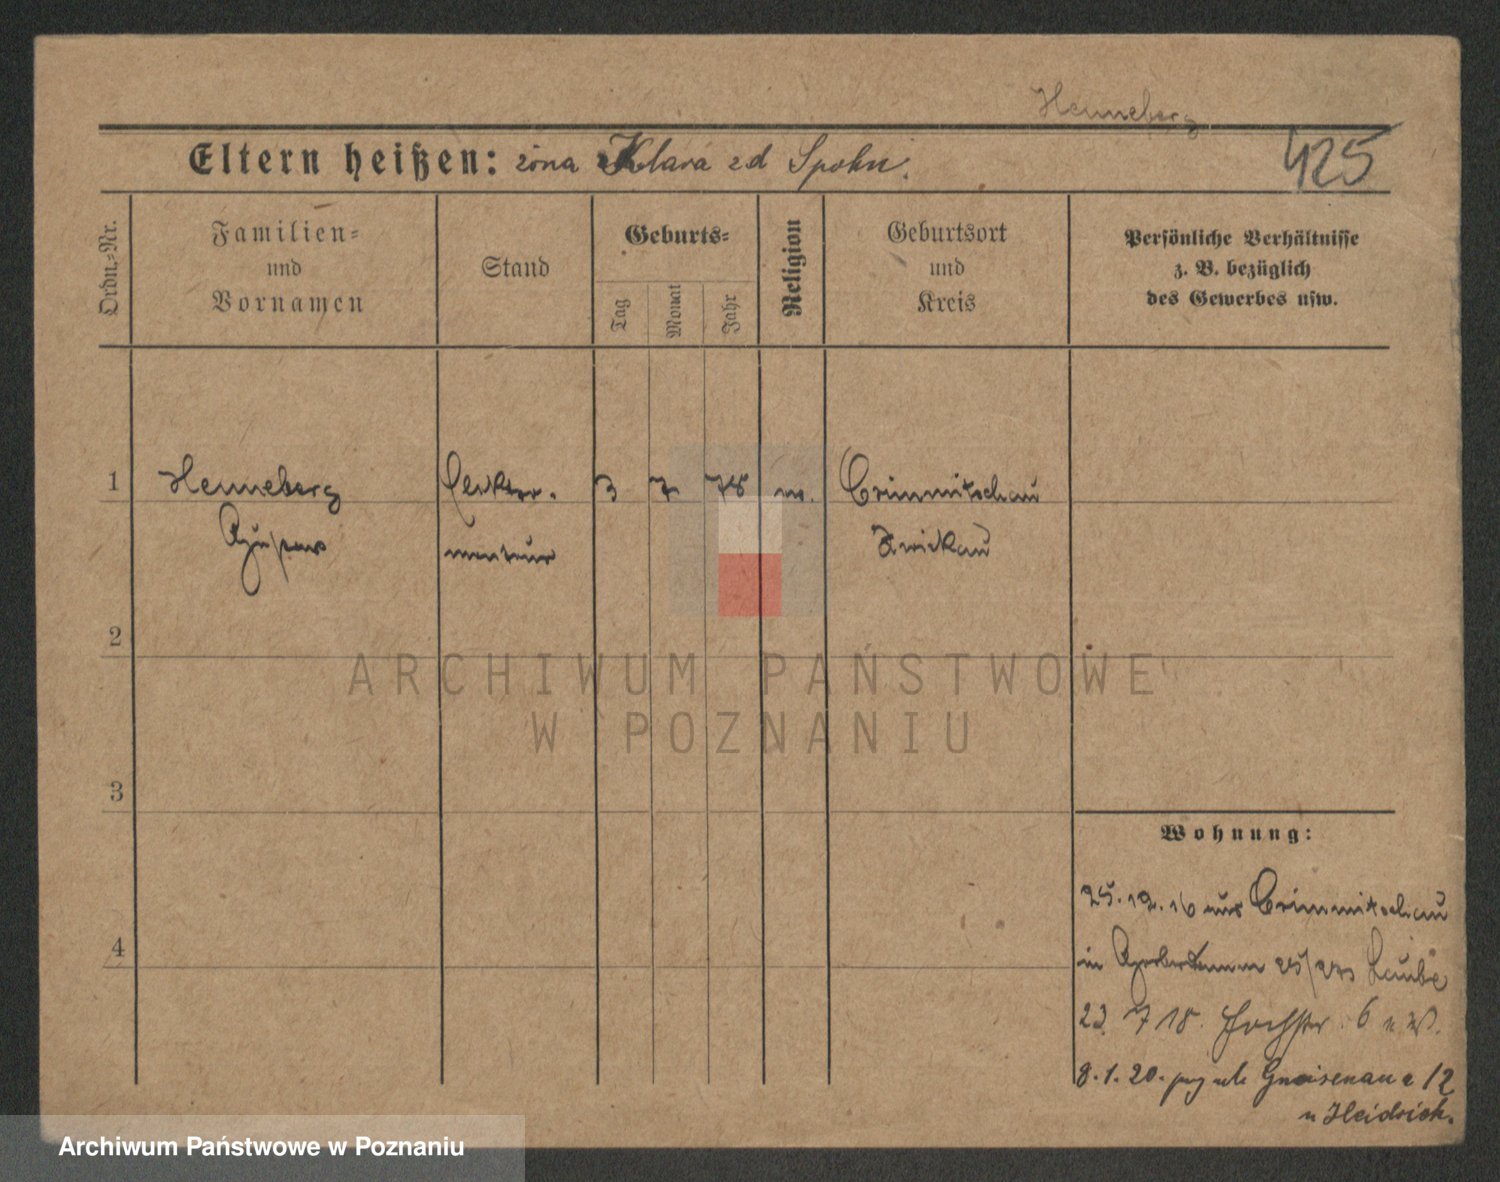 Henneberg
Eltern heißen: żona Klara zd Spohn.
425
Ordn.-Nr.
Familien-
und
Vornamen
Stand
Geburts-
Tag
Monat
Jahr
Religion
Geburtsort
und
Kreis
Persönliche Verhältnisse
z. B. bezüglich
des Gewerbes usw.
1
Henneberg
3 7 78
Crimmitschau
monteur
Zwickau
2
ARCHIWUM PAŃSTWOWE
W POZNANIU
3
Wohnung:
25.12.16 aus Crimmitschau
4
in
23. 7 18. 6
8.1.20. Gneisenaua 12
u Heidrich.
Archiwum Państwowe w Poznaniu